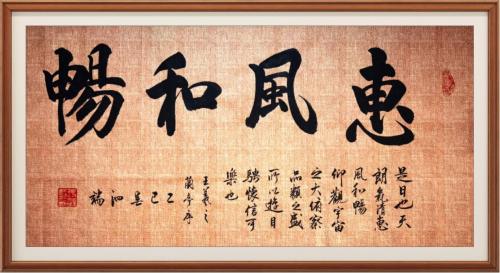 惠風和暢
是日也天
朗氣清惠
風和暢
仰觀宇宙
之大俯察
品類之盛
所以遊目
騁懷信可
樂也
王羲之
蘭亭序
乙巳